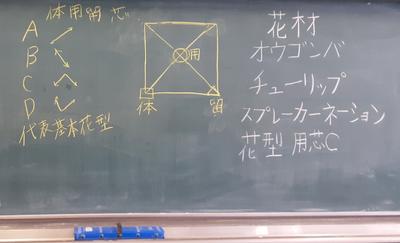 体用留 芯
A
B
C
D
代表基本花型
用
体
留
花材
オウゴンバ
チューリップ
スプレーカーネーション
花型 用芯C